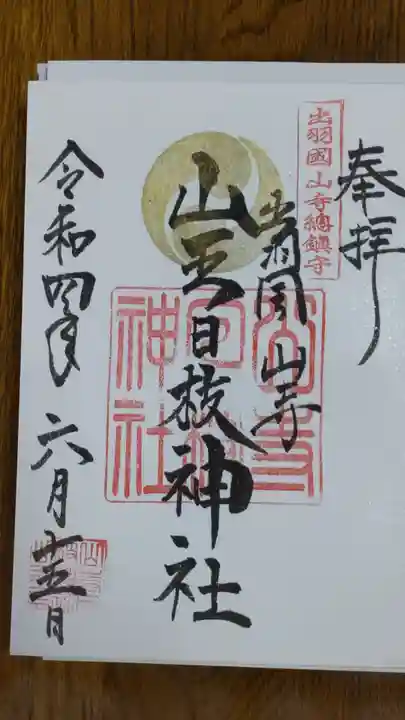 奉拝
出羽國山寺總鎮守
出羽國 山寺
山王日枝神社
山寺日枝神社
令和四年 六月十五日